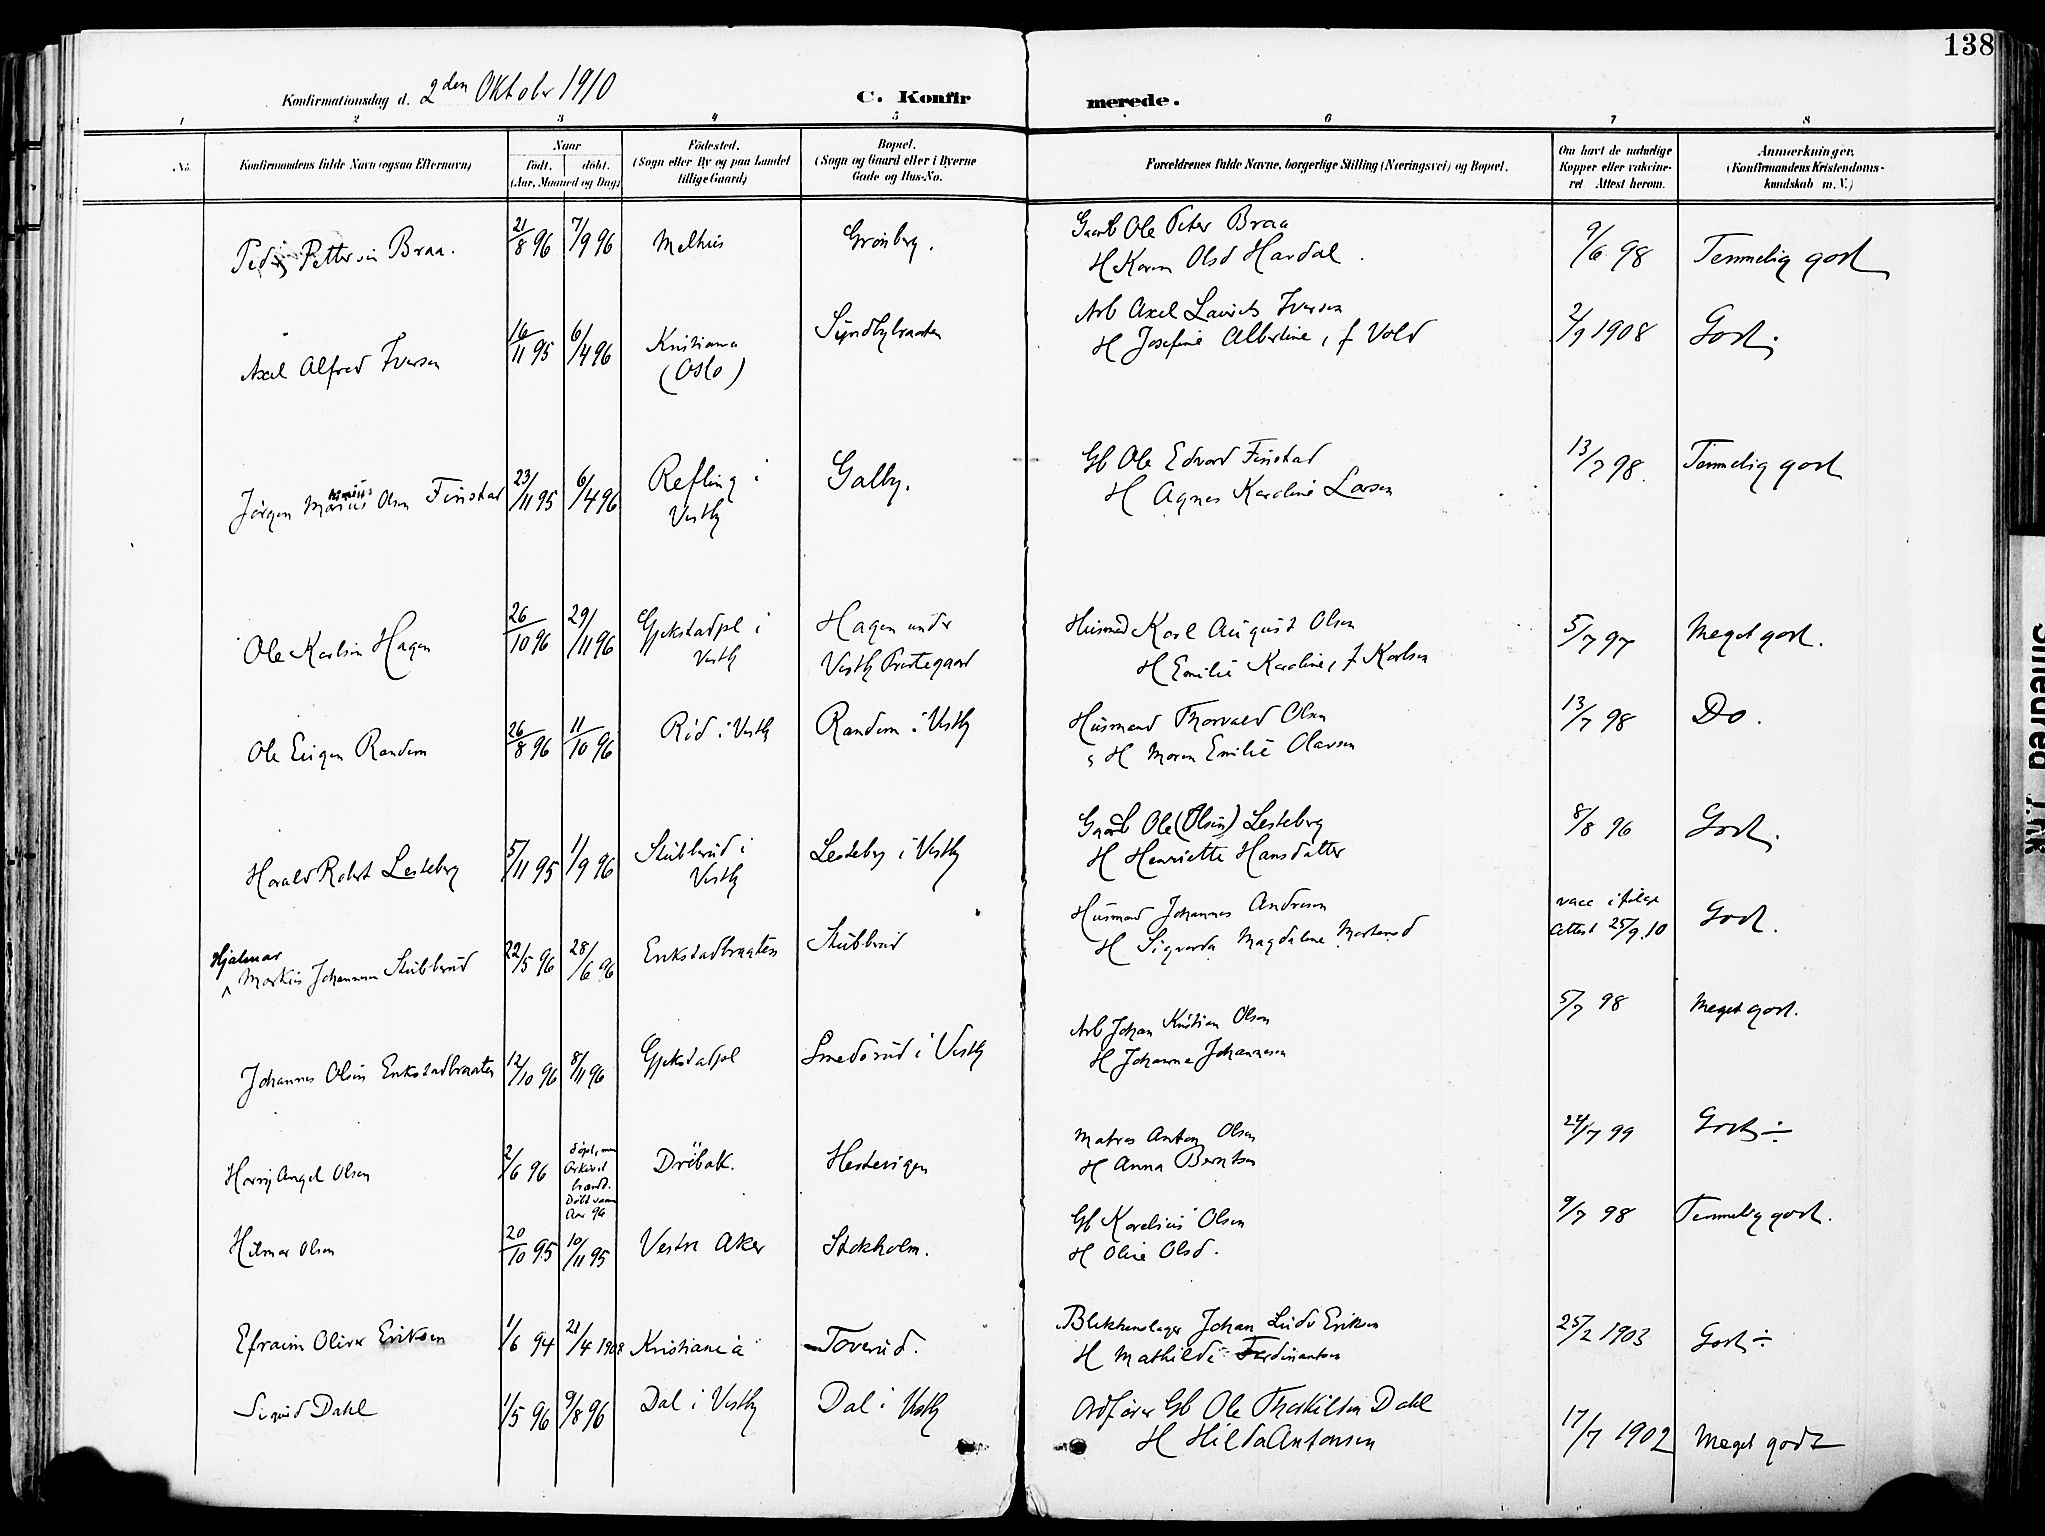 138
Konfirmationsdag d. 2den Oktober 1910
C. Konfirmerede.
1 2 3 4 5 6 7 8
No.
Konfirmandens fulde Navn (ogsaa Efternavn)
Naar
født. døbt.
(Aar, Maaned og Dag)
Födested.
(Sogn eller By og paa Landet
tillige Gaard)
Bopæl.
(Sogn og Gaard eller i Byerne
Gade og Hus-No.
Forældrenes fulde Navne, borgerlige Stilling (Næringsvei) og Bopæl.
Om havt de naturlige
Kopper eller vakcine-
ret Attest herom.
Anmærkninger.
(Konfirmandens Kristendoms-
kundskab m. V.)
Petter Braa. 21/8 96 7/9 96 Melhus Grønberg. Gaarb Ole Peter Braa 9/6 98 Temmelig godt
H Karen Olsd Hardal.
Axel Alfred Iversen 16/11 95 6/4 96 Kristiania Sundbybraaten Arb Axel Laurits Iversen 2/9 1908 Godt.
(Oslo) H Josefine Albertine, f Vold
Jørgen Marius Olsen Finstad 23/11 95 6/4 96 Refling i Galby. Gb Ole Edvard Finstad 13/7 98. Temmelig godt
Vestby H Agnes Karoline Larsen
Ole Karlsen Hagen 26/10 96 29/11 96 Gjekstadpl i Hagen under Husmd Karl August Olsen 5/7 97 Meget godt.
Vestby Vestby Prestegaard H Emilie Karoline, f Karlsen
Ole Eugen Randem 26/8 96 11/10 96 Rød i Vestby Randem i Vestby Husmand Thorvald Olsen 13/7 98 Do.
H Maren Emilie Olavsen
Harald Robert Lesteberg 5/11 95 1/9 96 Stubberud i Lesteberg i Vestby Gaarb Ole (Olsen) Lesteberg 8/8 96 Godt.
Vestby H Henriette Hansdatter
Hjalmar
Markus Johannesen Stubberud 22/5 96 28/6 96 Enkstadbraaten Stubberud Husmand Johannes Andresen vacc ifølge Attest 25/9.10 Godt.
H Sigvarda Magdalene Martensd
Johannes Olsen Enkstadbraaten 12/10 96 8/11 96 Gjekstadpl Smedsrud i Vestby Arb Johan Kristian Olsen 5/7 98 Meget godt.
H Johanne Johannesen
Harry Angel Olsen 2/6 96 Arkivet brændt. Døbt samme Aar 96 Drøbak. Hestevigen Matros Anton Olsen 24/7 99 Godt ÷
H Anna Berntsen
Hilmar Olsen 20/10 95 10/11 95 Vestre Aker Stokholm. Gb Karelius Olsen 9/7 98 Temmelig godt.
H Oline Olsd.
Efraim Oliver Eriksen 1/6 94 21/4 1908 Kristiania Toverud. Blikkenslager Johan Ludv Eriksen 25/2 1903 Godt ÷
H Mathilde Ferdinantsen
Sigurd Dahl 1/5 96 9/8 96 Dal i Vestby Dal i Vestby Ordfører Gb Ole Thorkildsen Dahl 17/7 1902 Meget godt
H Hilda Antonsen